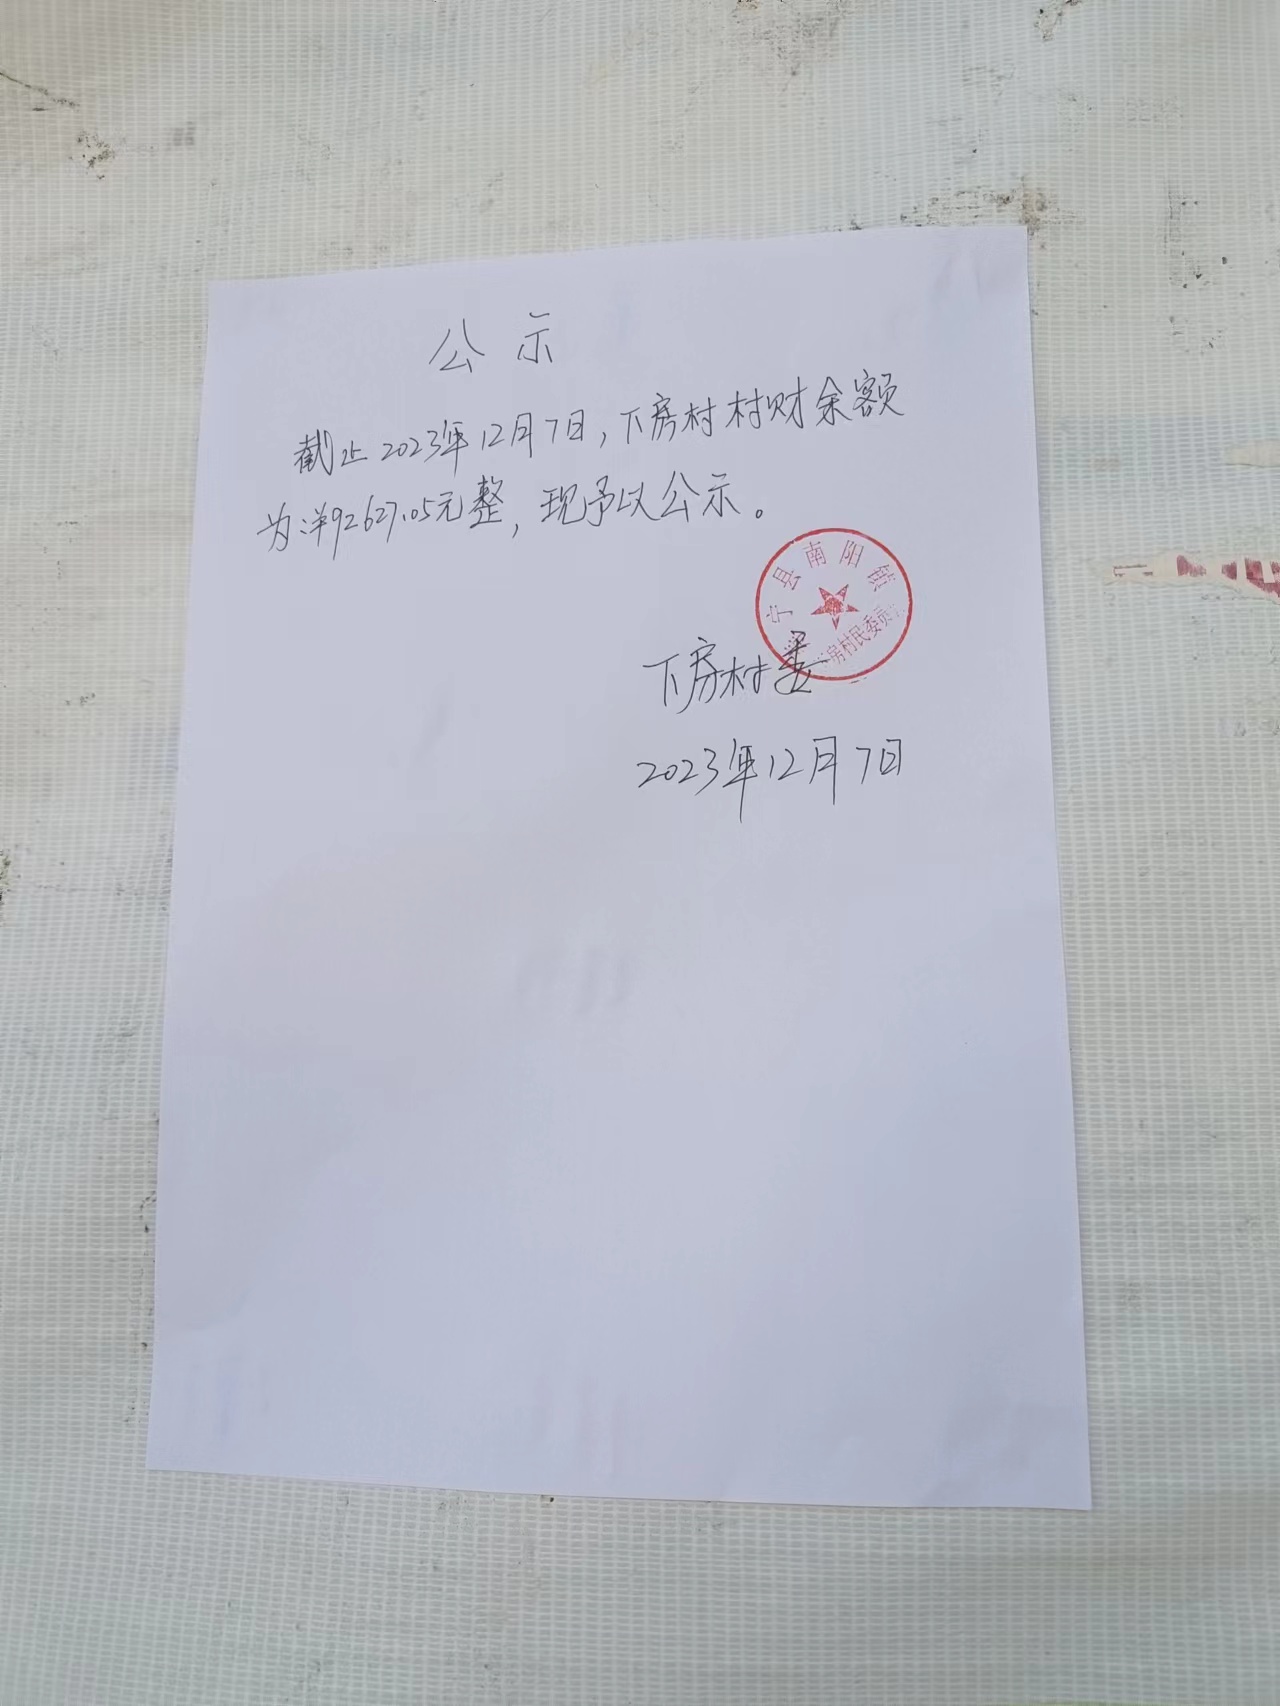 公示
截止2023年12月7日,下房村村财余额
为:洋92627.05元整,现予以公示。
宁县南阳镇
房村民委员
下房村委
2023年12月7日